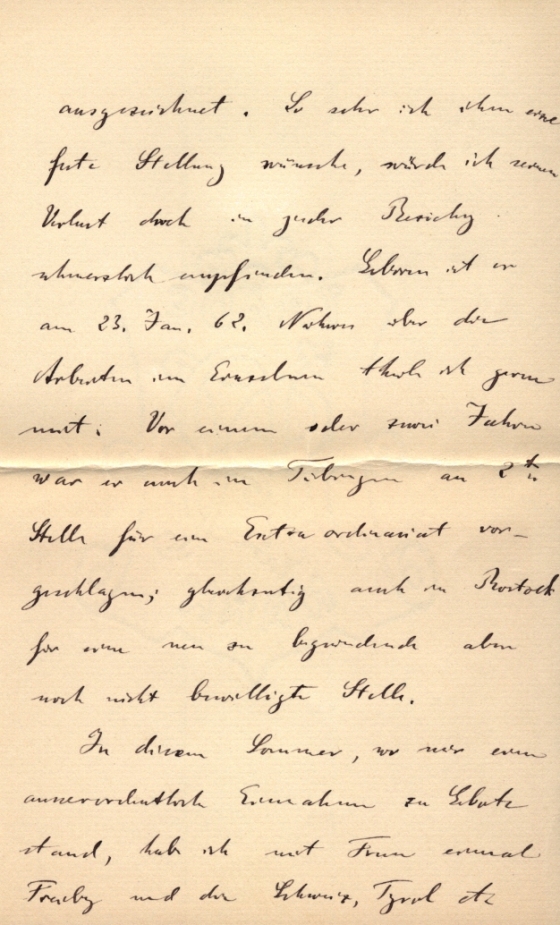 ausgezeichnet. So sehr ich ihm eine
feste Stellung wünsche, würde ich seinen
Verlust doch in jeder Beziehg
schmerzlich empfinden. Geboren ist er
am 23. Jan. 62. Näheres über die
Arbeiten im Einzelnen theile ich gerne
mit. Vor einem oder zwei Jahren
war er auch in Tübingen an 2ter
Stelle für ein Extraordinariat vor-
geschlagen; gleichzeitig auch in Rostock
für eine neu zu begründende aber
noch nicht bewilligte Stelle.
In diesem Sommer, wo mir eine
ausserordentliche Einnahme zu Gebote
stand, habe ich mit Frau einmal
Freibg und die Schweiz, Tyrol etc